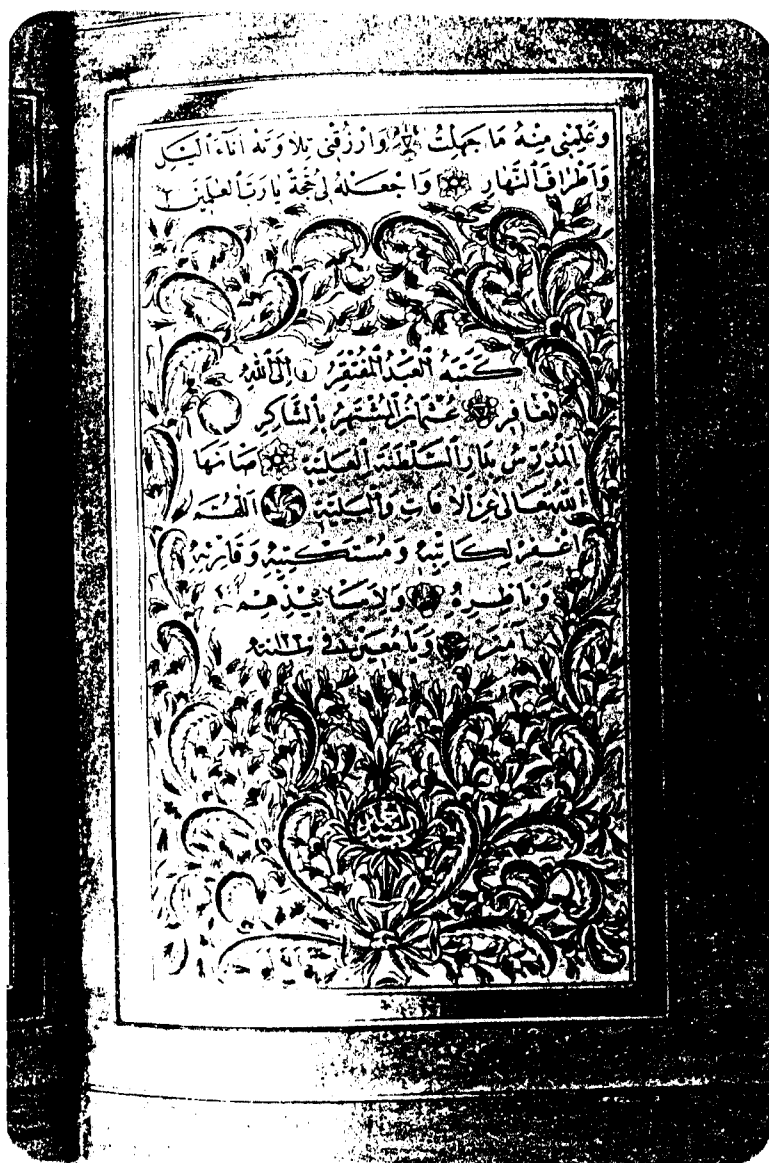 وَعَلِّمْنِي مِنْهُ مَا جَهِلْتُ وَارْزُقْنِي تِلَاوَتَهُ اٰنَاءَ الَّيْلِ
وَاَطْرَافَ النَّهَارِ وَاجْعَلْهُ لِي حُجَّةً يَارَبَّ الْعٰلَمِينَ
كَتَبَهُ الْعَبْدُ الْمُفْتَقِرُ اِلَى اللّٰهِ
الْغَافِرِ عُثْمَانُ الْمُشْتَهِرُ بِالشَّاكِرِ
الْمُدَرِّسُ بِدَارِ السَّلْطَنَةِ الْعَلِيَّةِ صَانَهَا
اللّٰهُ تَعَالٰى عَنِ الْاٰفَاتِ وَالْبَلِيَّةِ اَللّٰهُمَّ
اغْفِرْ لِكَاتِبِهِ وَمُسْتَكْتِبِهِ وَقَارِئِهِ
وَنَاظِرِهِ وَلِاَسَاتِيذِهِمْ